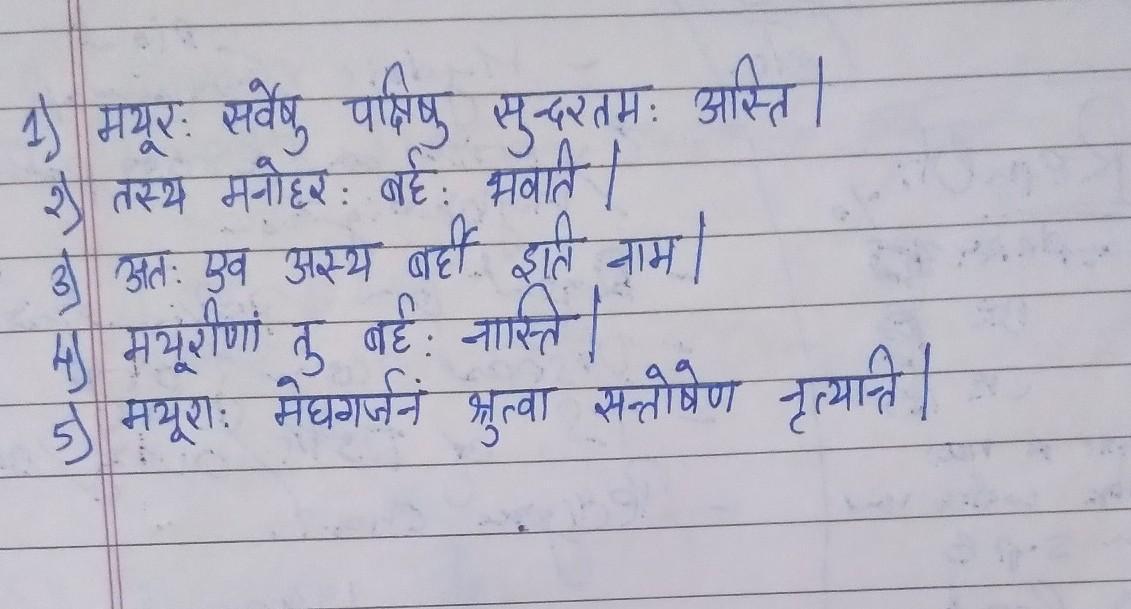 1) मयूरः सर्वेषु पक्षिषु सुन्दरतमः अस्ति।
२) तस्य मनोहरः बर्हः भवति।
३) अतः एव अस्य बर्ही इति नाम।
4) मयूरीणां तु बर्हः नास्ति।
5) मयूराः मेघगर्जनं श्रुत्वा सन्तोषेण नृत्यन्ति।